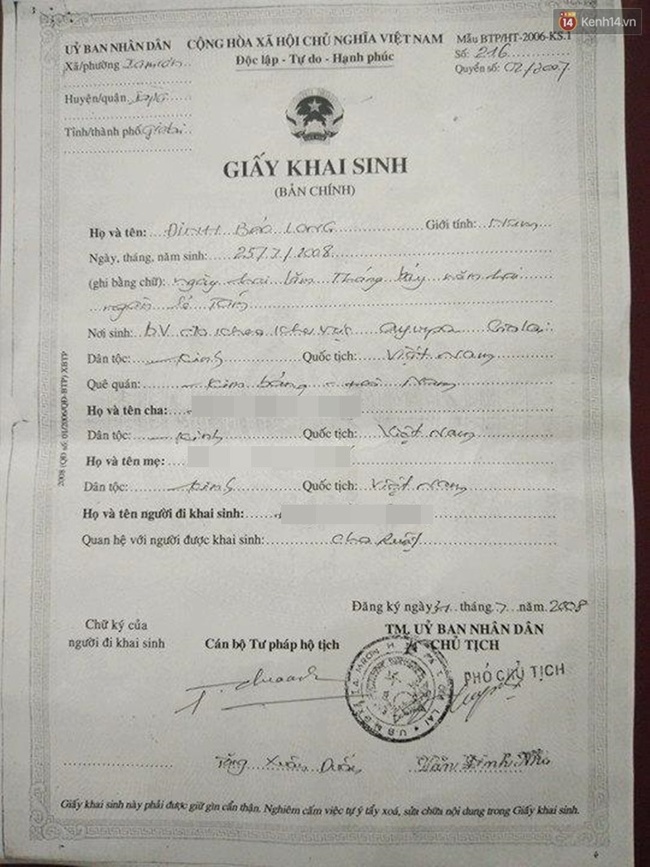 14 Kenh14.vn
ỦY BAN NHÂN DÂN
CỘNG HÒA XÃ HỘI CHỦ NGHĨA VIỆT NAM
Mẫu BTP/HT-2006-KS.1
Xã/phường
Độc lập - Tự do - Hạnh phúc
Số: 216
Quyển số: 02/2007
Huyện/quận
Tỉnh/thành phố
GIẤY KHAI SINH
(BẢN CHÍNH)
Họ và tên: ĐINH BẢO LONG Giới tính: Nam
Ngày, tháng, năm sinh: 25/7/2008
(ghi bằng chữ): ngày hai lăm Tháng bảy năm hai
Nơi sinh: BV Gialai
Dân tộc: Kinh Quốc tịch: Việt Nam
Quê quán: Kim bảng - Hà Nam
Họ và tên cha:
Dân tộc: Kinh Quốc tịch: Việt Nam
Họ và tên mẹ:
Dân tộc: Kinh Quốc tịch: Việt Nam
Họ và tên người đi khai sinh:
Quan hệ với người được khai sinh: Cha Ruột
Đăng ký ngày 31 tháng 7 năm 2008
Chữ ký của
người đi khai sinh
Cán bộ Tư pháp hộ tịch
TM. UỶ BAN NHÂN DÂN
CHỦ TỊCH
PHÓ CHỦ TỊCH
Tăng Xuân
Văn Đình
Giấy khai sinh này phải được giữ gìn cẩn thận. Nghiêm cấm việc tự ý tẩy xoá, sửa chữa nội dung trong Giấy khai sinh.
2008 (QĐ số: 01/2006/QĐ-BTP) XBTP